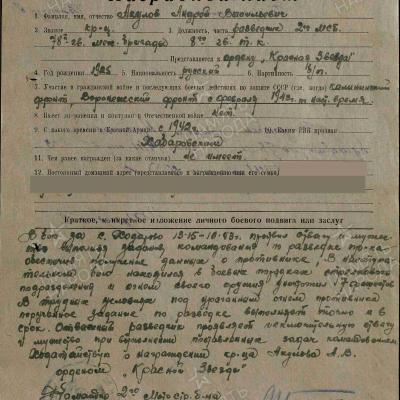 Наградной лист
1. Фамилия, имя, отчество Акулов Андрей Васильевич
2. Звание кр-ц 3. Должность, часть разведчик 2го МСБ.
Представляется к ордену „Красная Звезда"
4. Год рождения 1925 5. Национальность русский 6. Партийность б/п.
7. Участие в гражданской войне и последующих боевых действиях по защите СССР (где, когда) Калининский
фронт Воронежский фронт с февраля 1943 г. по наст. время.
8. Имеет ли ранения и контузии в Отечественной войне нет.
9. С какого времени в Красной Армии с 1942 г. 10. Каким РВК призван
Хабаровский
11. Чем ранее награжден (за какие отличия) не имеет.
12. Постоянный домашний адрес (представляемого к награждению или его семьи)
Краткое, конкретное изложение личного боевого подвига или заслуг
В бою за с. Ходорово 13-15-10-43 г. проявил отвагу и мужество
выполняя задание командования в разведке пр-ка
обеспечил получение данных о противнике. В наступательном
бою находился в боевых порядках стрелкового
подразделения и огнем своего оружия уничтожил 7 фашистов
В трудных условиях под огнем противника
порученное задание по разведке выполняет точно и в
срок. разведчик проявляет исключительную отвагу
и мужество при выполнении поставленных задач командованием
Ходатайствую о награждении кр-ца Акулова А. В.
орденом „Красная Звезда"
Командир 2го Мотостр. б-на